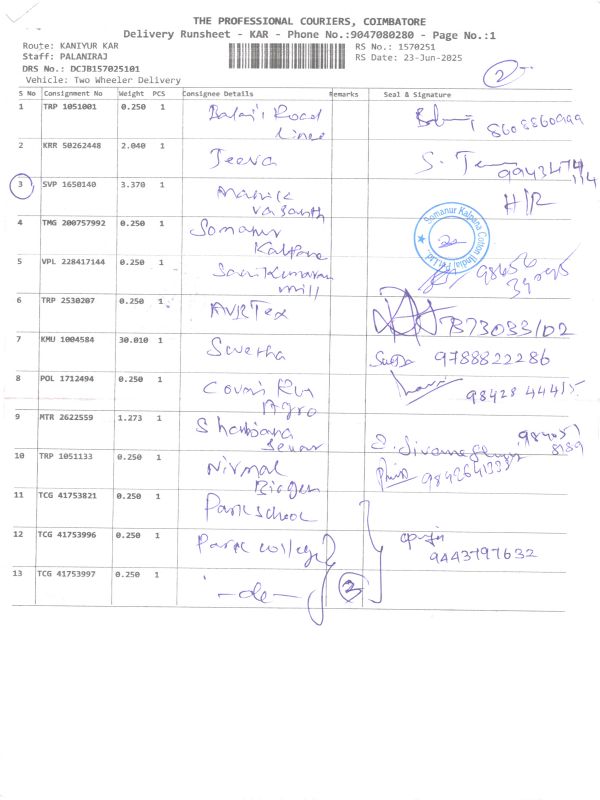 THE PROFESSIONAL COURIERS, COIMBATORE
Delivery Runsheet - KAR - Phone No.:9047080280 - Page No.:1
Route: KANIYUR KAR RS No.: 1570251
Staff: PALANIRAJ RS Date: 23-Jun-2025
DRS No.: DCJB157025101
Vehicle: Two Wheeler Delivery 2
S No Consignment No Weight PCS Consignee Details Remarks Seal & Signature
1 TRP 1051001 0.250 1 Balaji Road
Lines 8608860999
2 KRR 50262448 2.040 1 Jeeva
3 SVP 1650140 3.370 1 H/R
Vasanth
4 TMG 200757992 0.250 1 Somanur Somanur Kalpana Cotton (India) Pvt.Ltd.
Kalpana
5 VPL 228417144 0.250 1
mill
6 TRP 2530207 0.250 1 AVR Tex
7 KMU 1004584 30.010 1 Swetha 9788822286
8 POL 1712494 0.250 1 98428 44415
Agro
9 MTR 2622559 1.273 1
10 TRP 1051133 0.250 1 Nirmal
11 TCG 41753821 0.250 1 Park school
12 TCG 41753996 0.250 1 Park college 9443797632
13 TCG 41753997 0.250 1 -do- 3